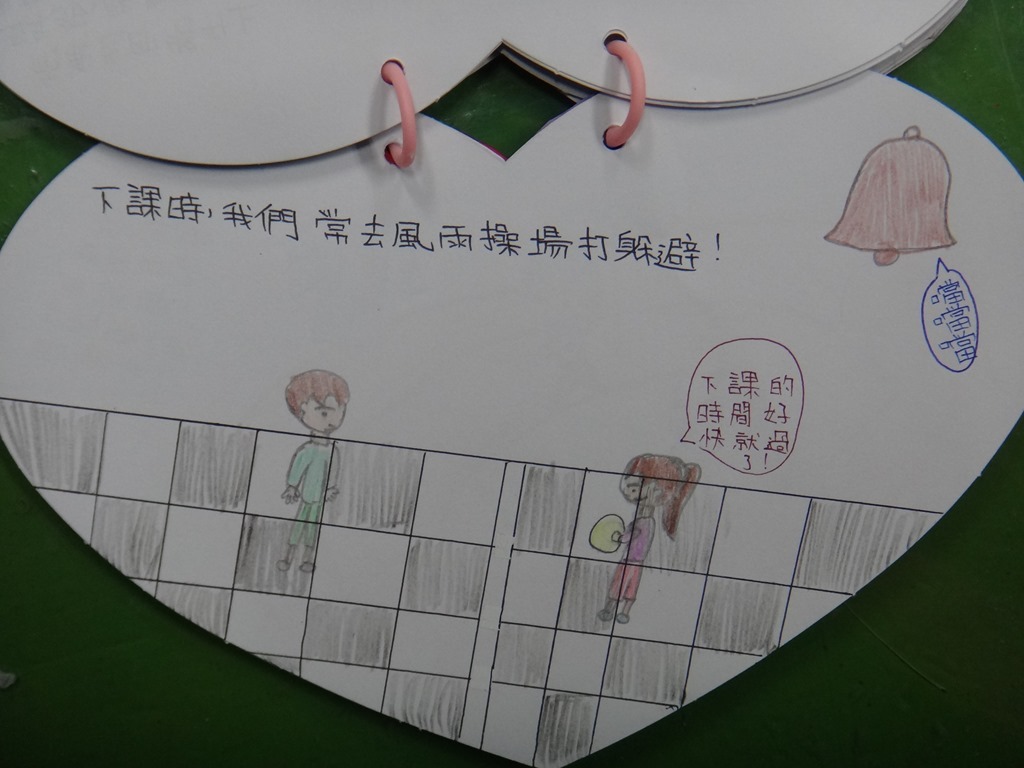 下課時，我們常去風雨操場打躲避！
噹噹噹
下課的
時間好
快就過
了！